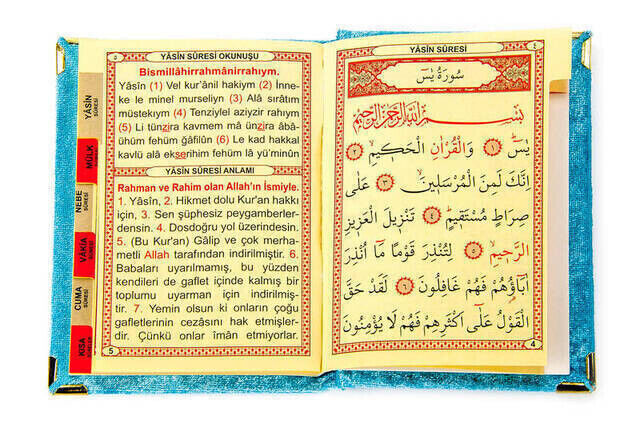 YÂSÎN SÛRESİ
٤
سُورَةُ يٰسٓ
بِسْمِ اللّٰهِ الرَّحْمٰنِ الرَّحِيمِ
يٰسٓ ﴿١﴾ وَالْقُرْاٰنِ الْحَكِيمِ ﴿٢﴾
اِنَّكَ لَمِنَ الْمُرْسَلِينَ ﴿٣﴾ عَلٰى
صِرَاطٍ مُسْتَقِيمٍ ﴿٤﴾ تَنْزِيلَ الْعَزِيزِ
الرَّحِيمِ ﴿٥﴾ لِتُنْذِرَ قَوْمًا مَٓا اُنْذِرَ
اٰبَٓاؤُهُمْ فَهُمْ غَافِلُونَ ﴿٦﴾ لَقَدْ حَقَّ
الْقَوْلُ عَلٰٓى اَكْثَرِهِمْ فَهُمْ لَا يُؤْمِنُونَ
4
٥
YÂSÎN SÛRESİ OKUNUŞU
Bismillâhirrahmânirrahıym.
Yâsîn (1) Vel kur'ânil hakiym (2) İnne-
ke le minel murseliyn (3) Alâ sırâtım
müstekıym (4) Tenziylel aziyzir rahıym
(5) Li tünzira kavmem mâ ünzira âbâ-
ühüm fehüm ğâfilûn (6) Le kad hakkal
kavlü alâ ekserihim fehüm lâ yü'minûn
YÂSÎN SÛRESİ ANLAMI
Rahman ve Rahim olan Allah'ın İsmiyle.
1. Yâsîn, 2. Hikmet dolu Kur'an hakkı
için, 3. Sen şüphesiz peygamberler-
densin. 4. Dosdoğru yol üzerindesin.
5. (Bu Kur'an) Gâlip ve çok merha-
metli Allah tarafından indirilmiştir. 6.
Babaları uyarılmamış, bu yüzden
kendileri de gaflet içinde kalmış bir
toplumu uyarman için indirilmiş-
tir. 7. Yemin olsun ki onların çoğu
gafletlerinin cezasını hak etmişler-
dir. Çünkü onlar îmân etmiyorlar.
5
YÂSİN
SÛRESİ
MÜLK
SÛRESİ
NEBE
SÛRESİ
VÂKIA
SÛRESİ
CUMA
SÛRESİ
KISA
SÛRELER